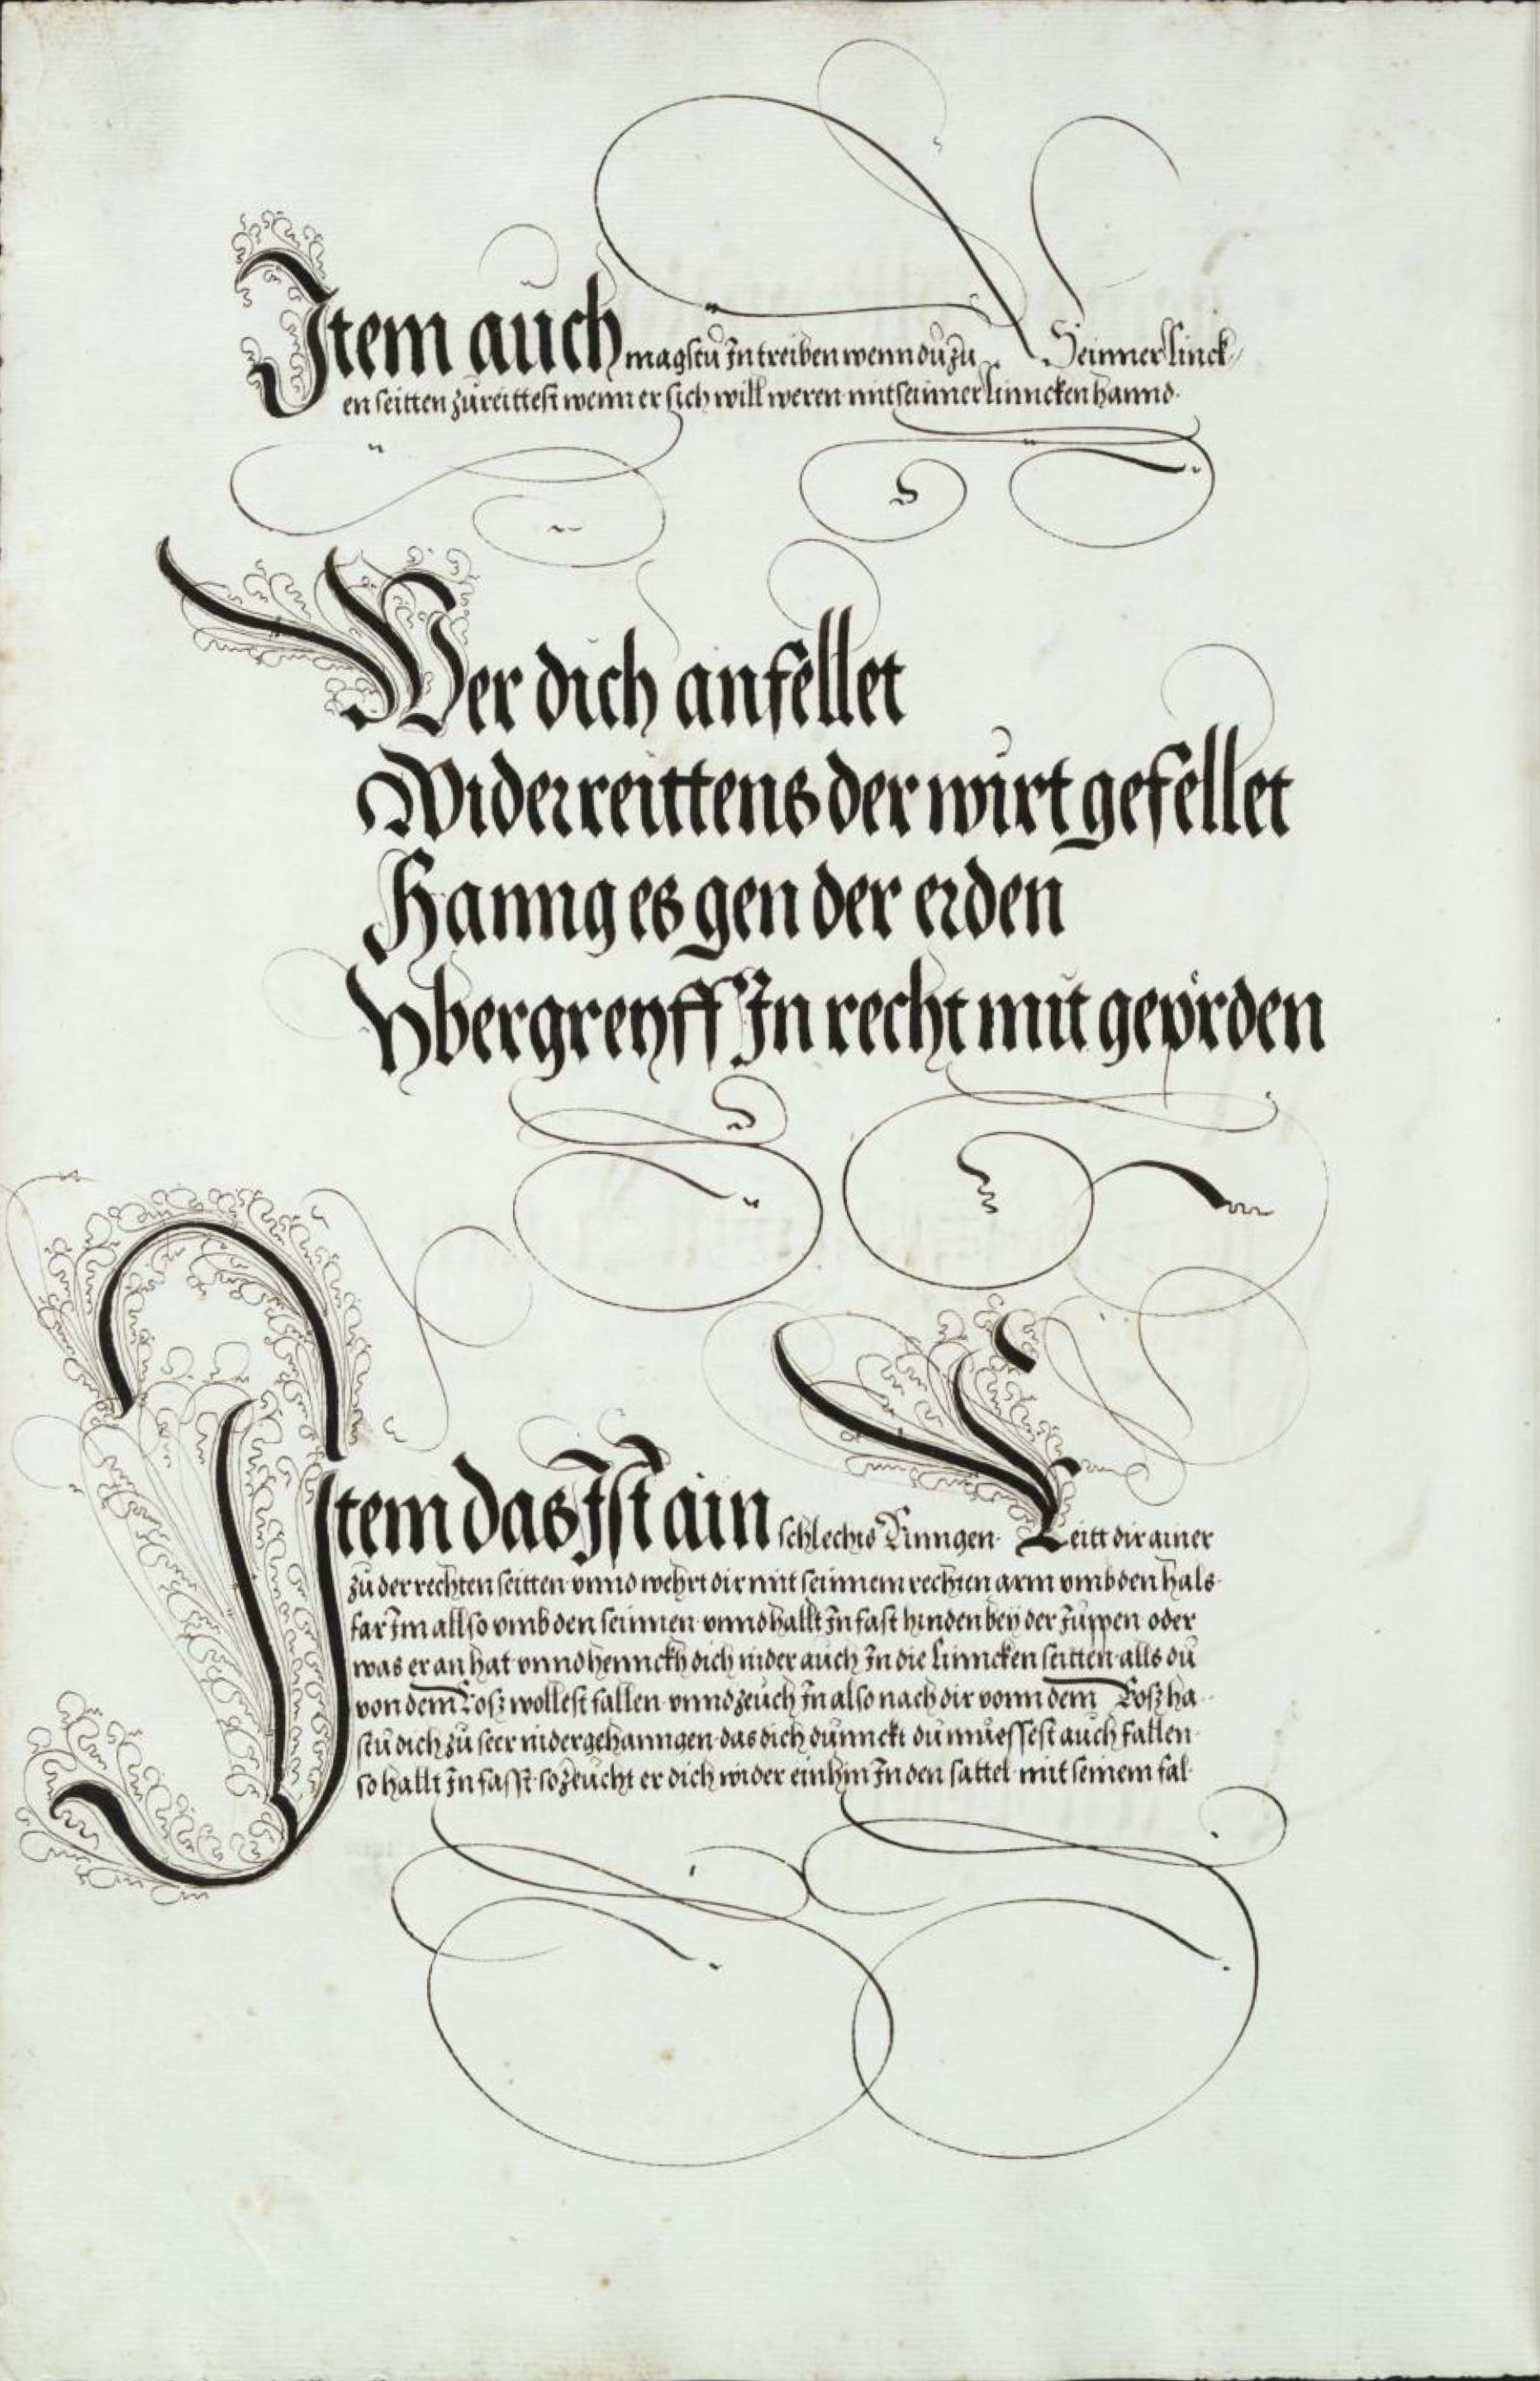 Item auch magstu In treiben wenn du zu Seinner linck-
en seitten zureittest wenn er sich will weren mit seinner linncken hannd.
Wer dich anfellet
Widerreittens der wirt gefellet
Hanng es gen der erden
Vbergreyff In recht mit geperden
Item das Ist ain schlechts Ringen. Reitt dir ainer
zu der rechten seitten vnnd wehrt dir mit seinnem rechten arm vmb den hals.
far Im allso vmb den seinnen vnnd hallt In fast hinden bey der Juppen oder
was er an hat vnnd hennckh dich nider auch In die linncken seitten alls du
von dem Rosz wollest fallen vnnd zeuch In also nach dir vonn dem Rosz ha-
stu dich zu seer nidergehanngen das dich dunnckt du muessest auch fallen.
so hallt In fasst so zeucht er dich wider einhin In den sattel mit seinem fal